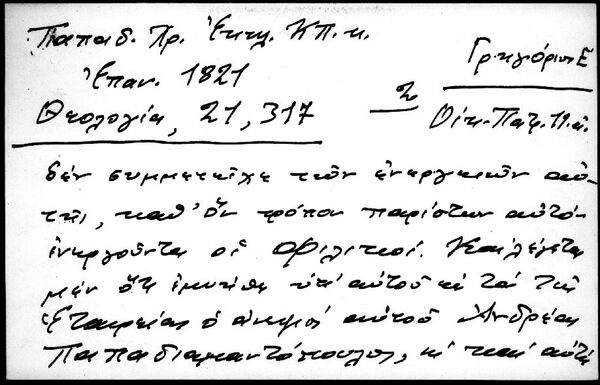 Παπαδ. Πρ. Ἐκκλ. ΚΠ. κ.
Ἐπαν. 1821
Θεολογία, 21, 317
2
Γρηγόριος Ε
Οἰκ. Πατρ. 19 αἰ.
δέν συμμετεῖχε τῶν ἐνεργειῶν αὐ-
τῆς, καθ' ὅν τρόπον παρίστων αὐτό
ἐνεργοῦντα οἱ Φιλικοί. Καί λέγεται
μέν ὅτι ἐμυήθη ὑπ' αὐτοῦ εἰς τά τῆς
Ἑταιρείας ὁ ἀνεψιός αὐτοῦ Ἀνδρέας
Παπαδιαμαντόπουλος, κι